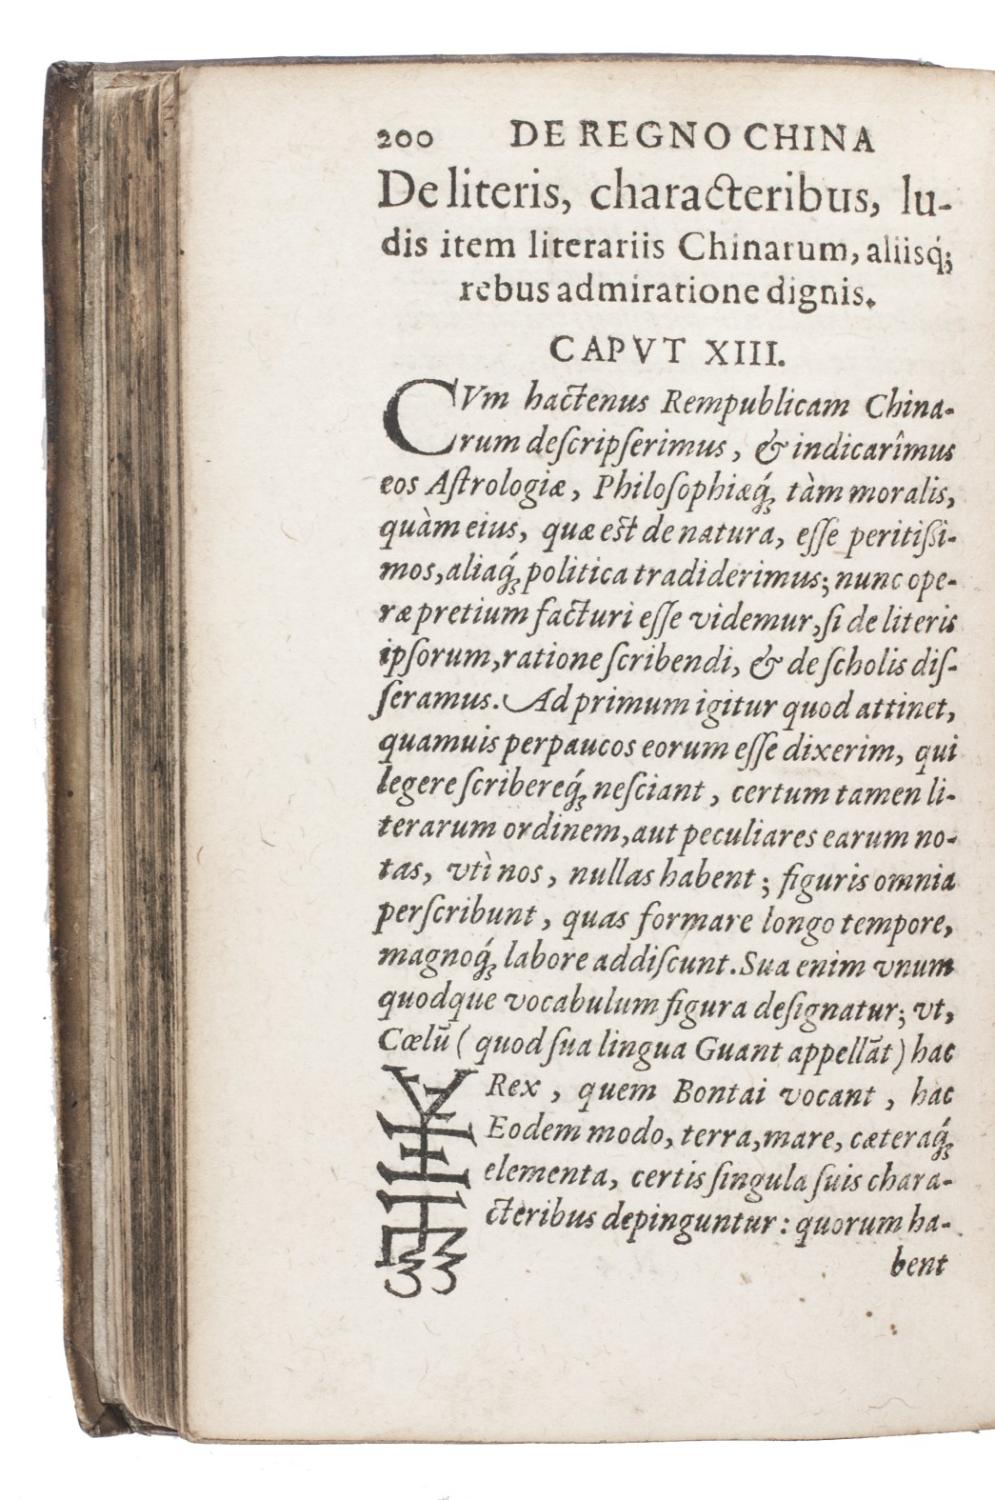 200 DE REGNO CHINA
De literis, characteribus, lu-
dis item literariis Chinarum, aliisq́;
rebus admiratione dignis.
CAPVT XIII.
CVm hactenus Rempublicam China-
rum deſcripſerimus, & indicarîmus
eos Aſtrologiæ, Philoſophiæq́; tàm moralis,
quàm eius, quæ eſt de natura, eſſe peritiſſi-
mos, aliaq́; politica tradiderimus; nunc ope-
ræ pretium facturi eſſe videmur, ſi de literis
ipſorum, ratione ſcribendi, & de ſcholis diſ-
ſeramus. Ad primum igitur quod attinet,
quamuis perpaucos eorum eſſe dixerim, qui
legere ſcribereq́; neſciant, certum tamen li-
terarum ordinem, aut peculiares earum no-
tas, vtì nos, nullas habent; figuris omnia
perſcribunt, quas formare longo tempore,
magnoq́; labore addiſcunt. Sua enim vnum
quodque vocabulum figura deſignatur; vt,
Cœlũ (quod ſua lingua Guant appellãt) hac
Rex, quem Bontai vocant, hac
Eodem modo, terra, mare, cæteraq́;
elementa, certis ſingula ſuis chara-
cteribus depinguntur: quorum ha-
bent